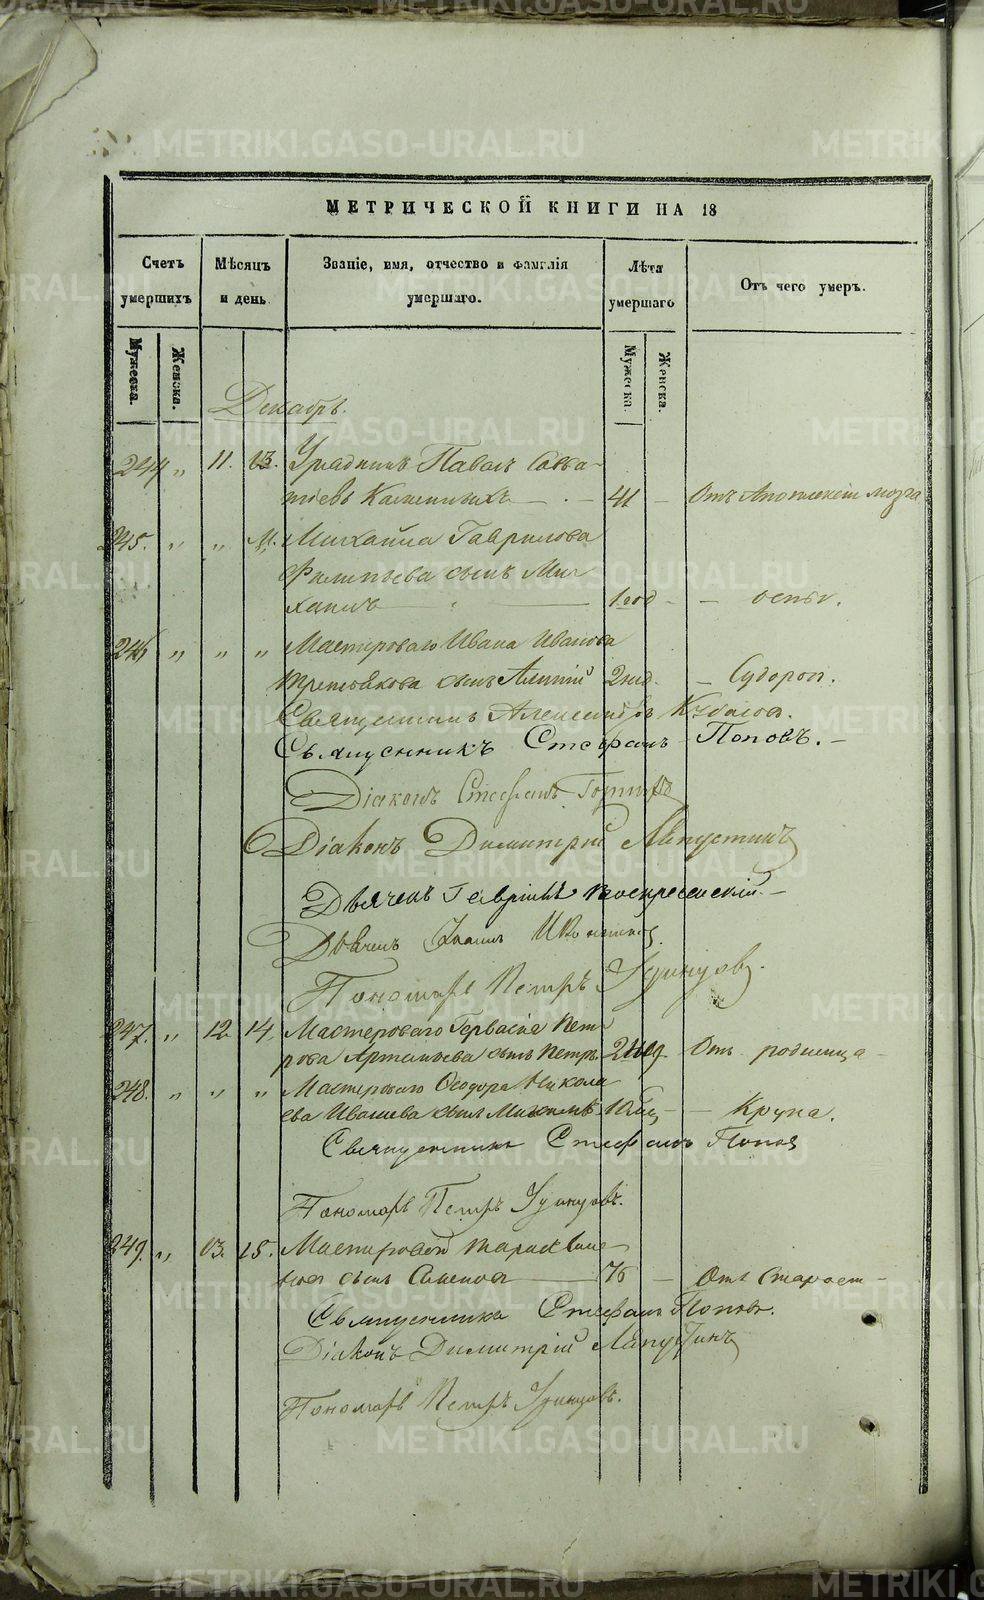 METRIKI.GASO-URAL.RU
МЕТРИЧЕСКОЙ КНИГИ НА 18
Счетъ умершихъ
Мѣсяцъ и день
Званіе, имя, отчество и фамилія умершаго.
Лѣта умершаго
Отъ чего умеръ.
Мужеска. Женска.
Мужеска. Женска.
Декабрь.
244 " 11. 13. Урядникъ Павелъ Савва-
тіевъ 41 - Отъ Апоплексіи мозга
245. " " Михайла Гаврилова
Филипьева сынъ Ми-
хаилъ 1 год - - оспы.
246 " " " Мастероваго Ивана Иванова
Третьякова сынъ 2 нед. - Судорог.
Священникъ Александръ
Священникъ Стефанъ Поповъ. -
Діаконъ Стефанъ
Діаконъ Димитрій Лапустинъ
Дьячекъ Гавріилъ Воскресенскій. -
Дьячекъ
Пономарь Петръ Удинцовъ.
247. " 12 14. Мастероваго Гервасія Пет-
рова Артемьева сынъ Петръ 2 нед. Отъ родимца -
248. " " " Мастероваго Ѳеодора Никола-
ева Ивашева сынъ 10 мѣс - - Крупа.
Священникъ Стефанъ Поповъ
Пономарь Петръ Удинцовъ.
249. " 13. 15. Мастеровой
сынъ Семеновъ 76 - Отъ старост -
Священникъ Стефанъ Поповъ.
Діаконъ Димитрій Лапустинъ
Пономарь Петръ Удинцовъ.